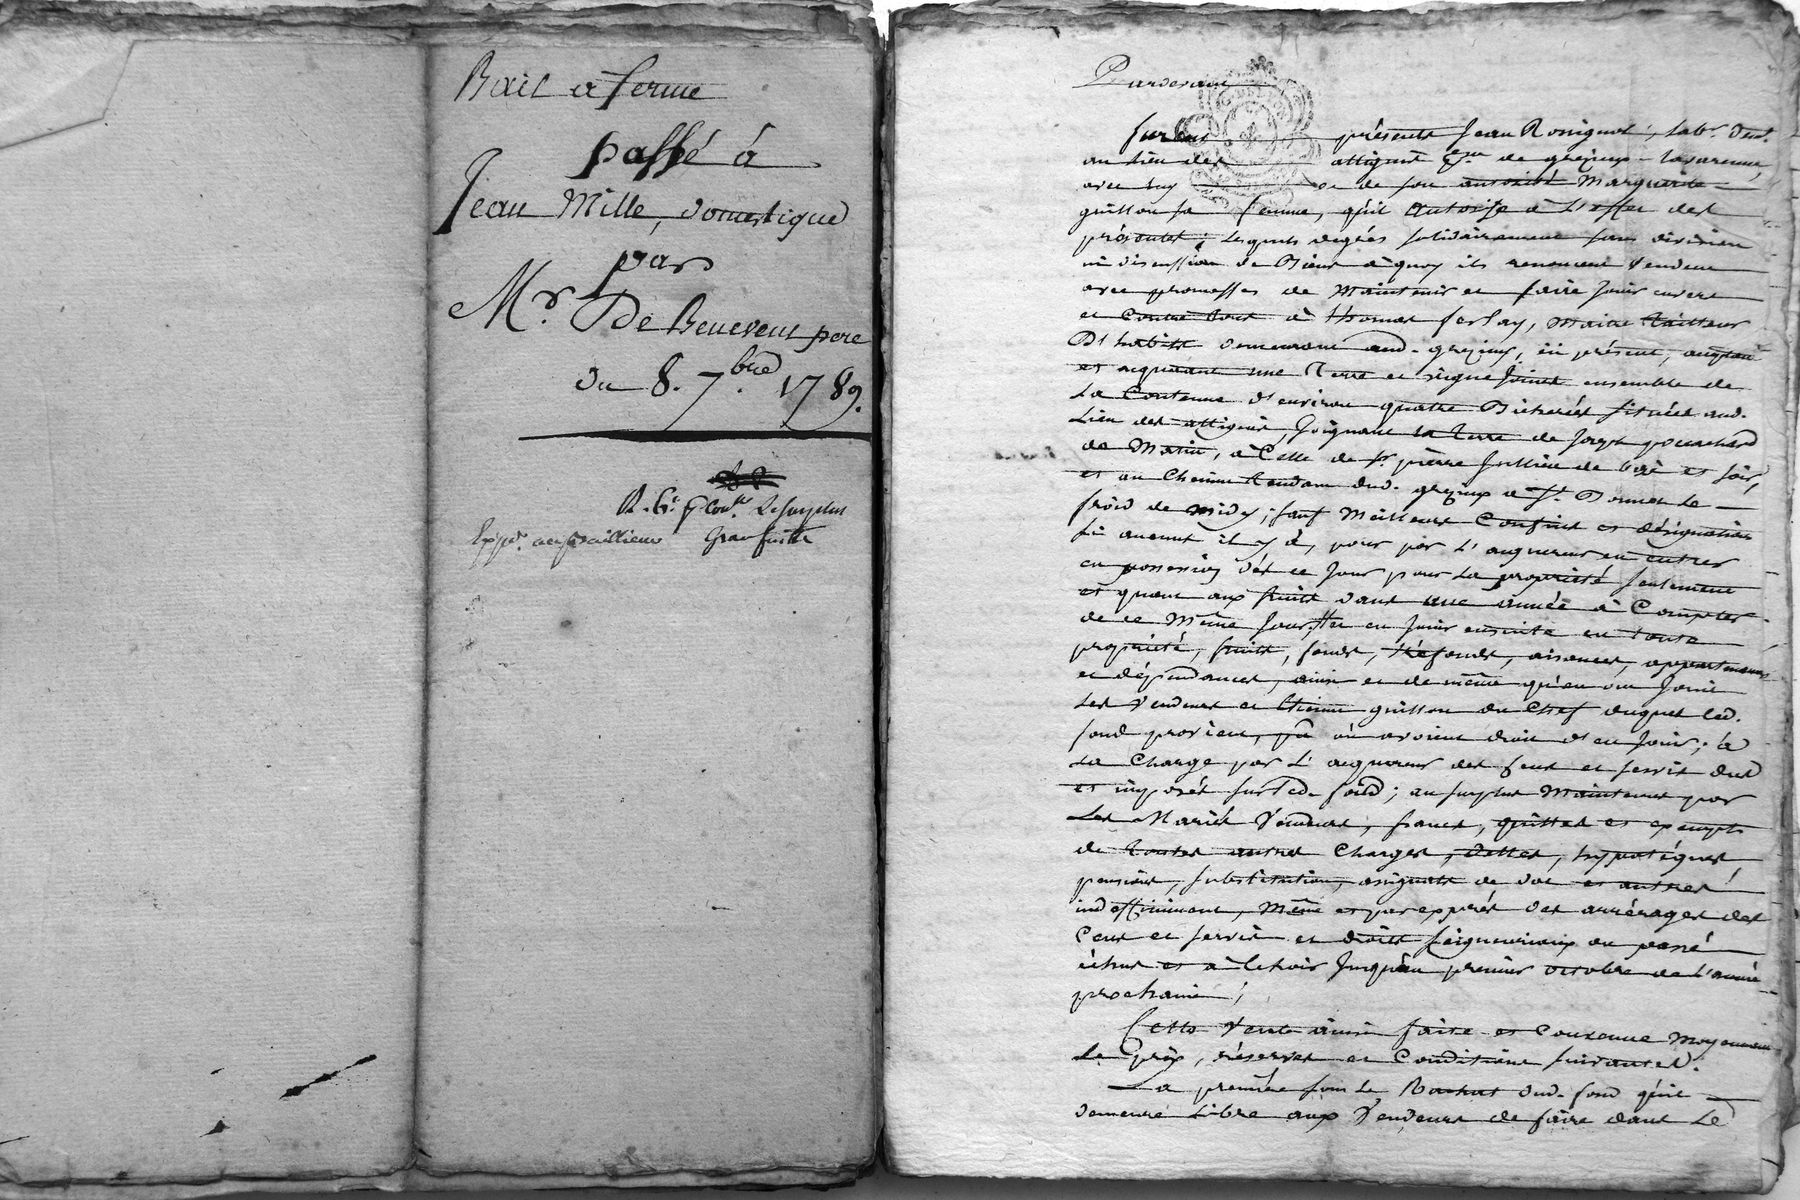 Bail a ferme
passé à
Jean Mille, domestique
par
Mr. De Benevent pere
du 8. 7.bre 1789.
Pardevant
furent présents Jean Rossignol, lab. dem.
au lieu des attignies de grezieux-lavarenne,
avec luy et de son autorité Marguerite
guillon sa femme, qu'il autorise à l'effet des
présentes; lesquels degrés solidairement sans division
ni discussion de Biens à quoy ils renoncent vendent
avec promesses de maintenir et faire jouir envers
et contre tous à thomas ferlay, maitre tailleur
D'habits demeurant aud. grezieux, ici présent,
et acquérant une Terre et vigne joints ensemble de
La Contenue d'environ quatre Bicherées située aud.
Lieu des attignies, joignant la terre de Joseph
de Matin, à Celle de Sr. pierre de et soir,
et au Chemin tendant dud. grezieux à St. Bonnet le
froid de midy; sauf meilleurs Confins et désignation
si aucuns il y à, pour par L'acquereur en entrer
en possession dès ce jour pour la propriété seulement
et quant aux fruits dans une année à Compter
de ce même jour, et en jouir ensuite en toute
propriété, fruits, fonds, tréfonds, aisances, appartenances
et dépendances, ainsi et de même qu'en ont joui
Les Vendeurs et Etienne guillon du Chef duquel led.
fond provient, ou avoient droit d'en jouir; à
La Charge par L'acquereur des Cens et servis dus
et imposés sur led. fond; au surplus maintenus par
Les Mariés Vendeurs, francs, quittes et exempts
de toutes autres Charges, dettes, hypotéques
pensions, substitution, assignats de dot et autres
indéffiniment, même et par exprès des arrérages des
Cens et servis et droits seigneuriaux du passé
échus et à échoir jusqu'au premier octobre de L'année
prochaine;
Cette Vente ainsi faite et Convenue Moyennant
Le Prix, réserves et Conditions suivantes.
La première sous le Rachat dud. fond qu'il
demeure Libre aux Vendeurs de faire dans Le